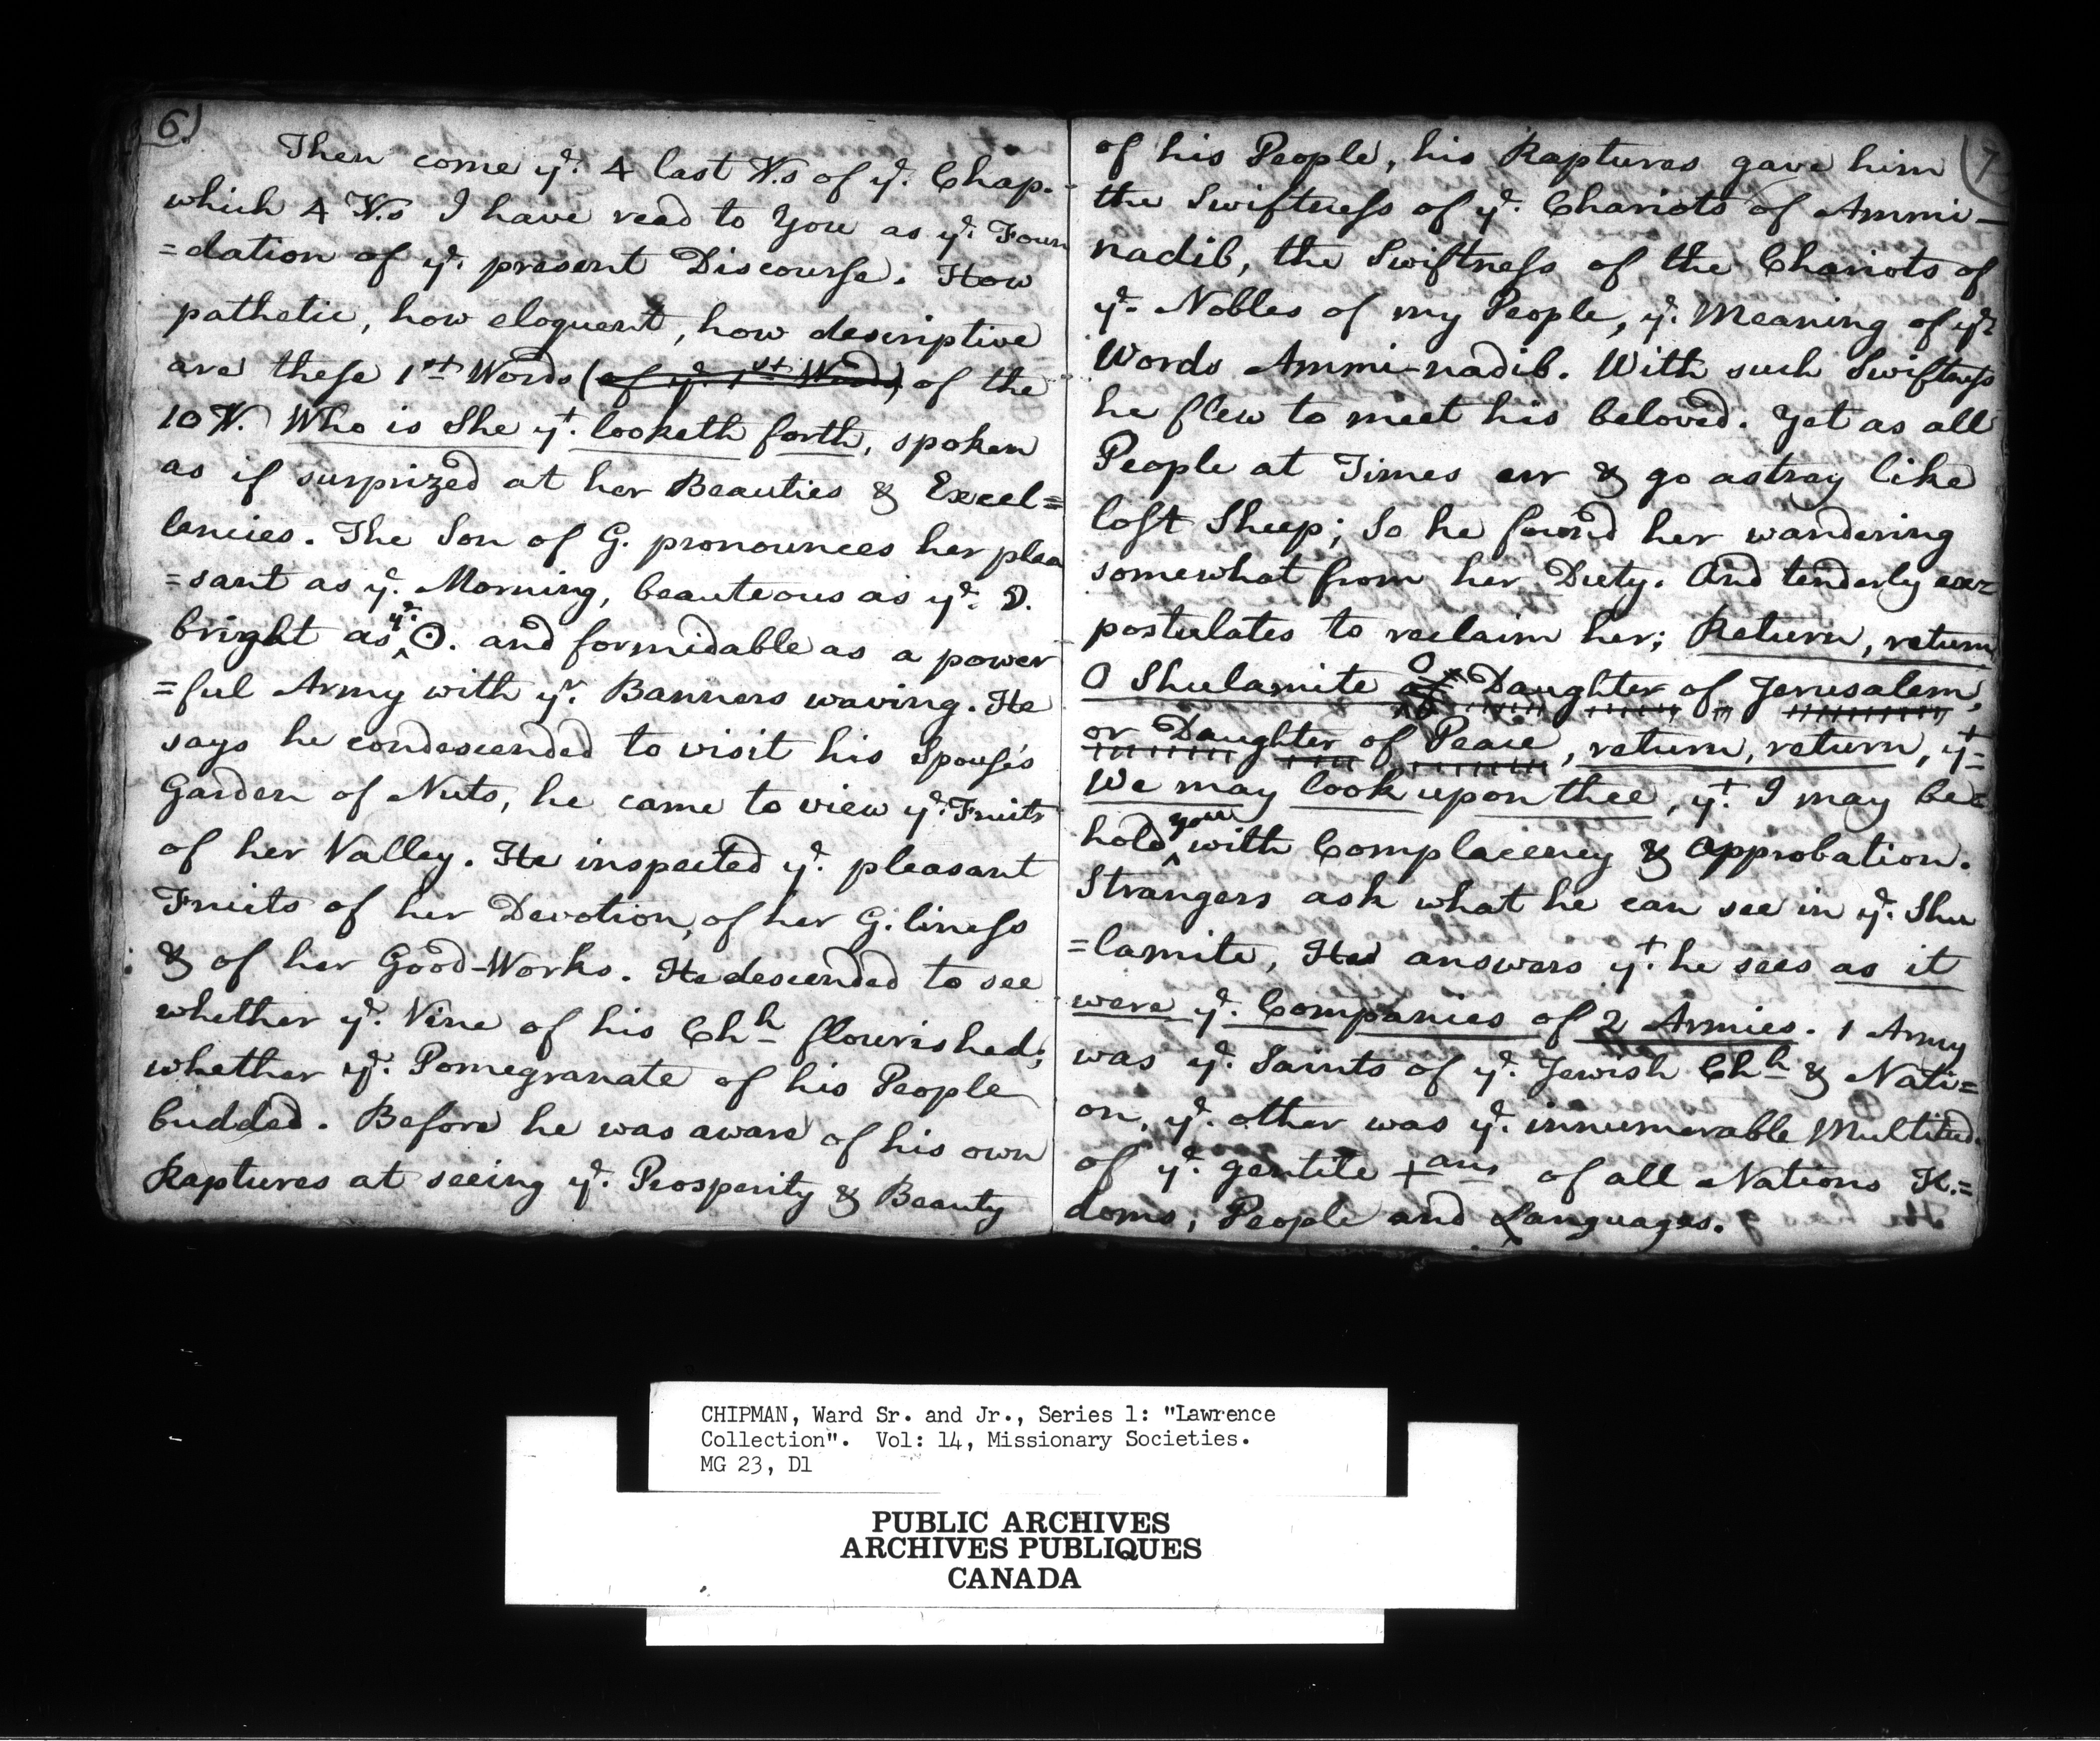 6.)
Then come yͤ. 4 last V.s of yͤ. Chap.
which 4 V.s I have read to You as yͤ. Foun
=dation of yͤ. present Discourse. How
pathetic, how eloquent, how descriptive
are these 1st Words (of yͤ. 1st Words) of the
10 V. Who is She yͭ. looketh forth, spoken
as if surprized at her Beauties & Excel=
lencies. The Son of G. pronounces her plea
=sant as yͤ. Morning, beauteous as yͤ. ☽.
bright as yͤ. ☉. and formidable as a power
=ful Army with yͬ. Banners waving. He
says he condescended to visit his Spouse's
Garden of Nuts, he came to view yͤ. Fruits
of her Valley. He inspected yͤ. pleasant
Fruits of her Devotion, of her G.liness
& of her Good-Works. He descended to see
whether yͤ. Vine of his Chh flourished;
whether yͤ. Pomegranate of his People
budded. Before he was aware of his own
Raptures at seeing yͤ. Prosperity & Beauty
(7
of his People, his Raptures gave him
the Swiftness of yͤ. Chariots of Ammi-
nadib, the Swiftness of the Chariots of
yͤ. Nobles of my People, yͤ. Meaning of yͤ
Words Ammi-nadib. With such Swiftness
he flew to meet his beloved. Yet as all
People at Times err & go astray like
lost Sheep; So he found her wandering
somewhat from her Duty. And tenderly ex=
postulates to reclaim her; Return, return
O Shulamite O Daughter of Jerusalem,
or Daughter of Peace, return, return, yͭ=
We may look upon thee, yͭ. I may be=
hold you with Complacency & Approbation.
Strangers ask what he can see in yͤ. Shu
=lamite, He answers yͭ. he sees as it
were yͤ. Companies of 2 Armies. 1 Army
was yͤ. Saints of yͤ. Jewish Chh & Nati=
on, yͤ. other was yͤ. innumerable Multitud.
of yͤ. gentile +ans of all Nations K.=
doms, People and Languages.
CHIPMAN, Ward Sr. and Jr., Series 1: "Lawrence
Collection". Vol: 14, Missionary Societies.
MG 23, D1
PUBLIC ARCHIVES
ARCHIVES PUBLIQUES
CANADA